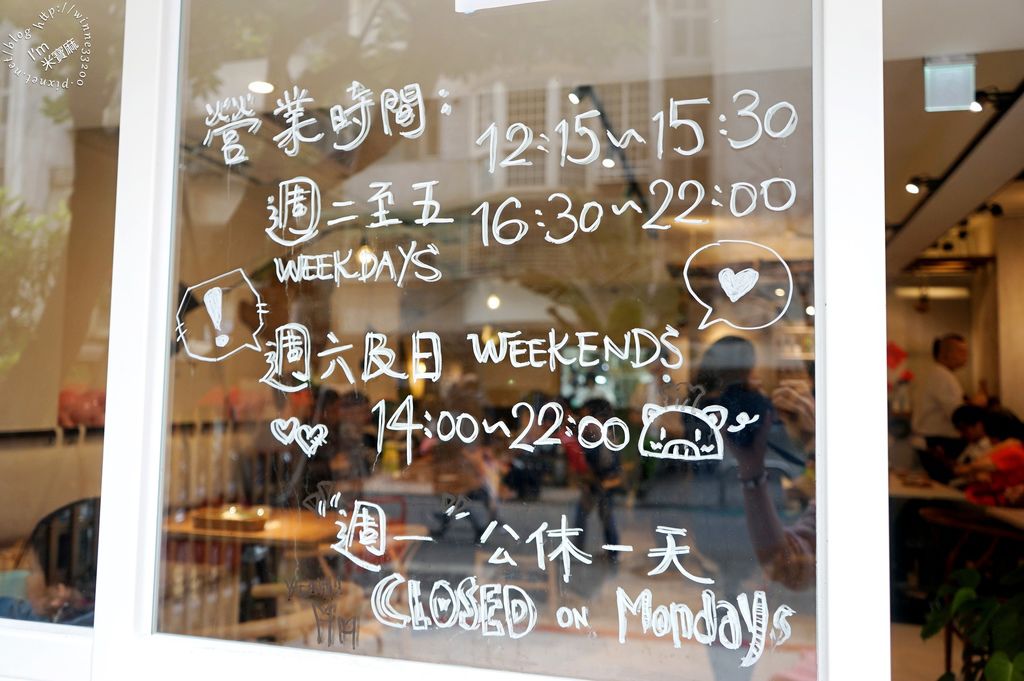 http://winne33200.pixnet.net/blog
I'm
米寶麻
營業時間:
12:15~15:30
週二至五 16:30~22:00
WEEKDAYS
!
週六及日 WEEKENDS:
14:00~22:00
"週一" 公休一天
CLOSED ON Mondays